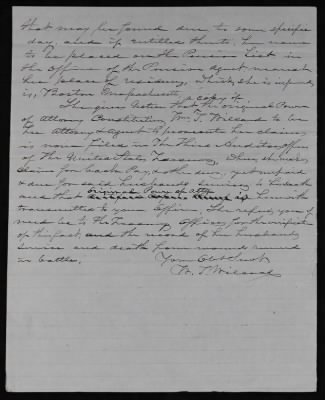 that may be found due to some specific
day, and if entitled thereto, her name
to be placed on the Pension List in
the office of the Pension Agent nearest
her place of residence, which, she is informed,
is, Boston Massachusetts, a copy of
She gives notice that the original Power
of Attorney Constituting Wm T. Willard to be
her Attorney & agent to prosecute her claims
is now filed in the Third Auditors Office
of the United States Treasury, where she has
claims for back Pay, & other dues, yet unpaid
& due for said husbands services to his death
and that original Power of Atty herewith
transmitted to your Office. She refers you if
need be to the Treasury Office, for the verification
of this fact, and the record of her husbands
service and death from wounds received
in battle.
Your Obt Servt
W. T. Willard